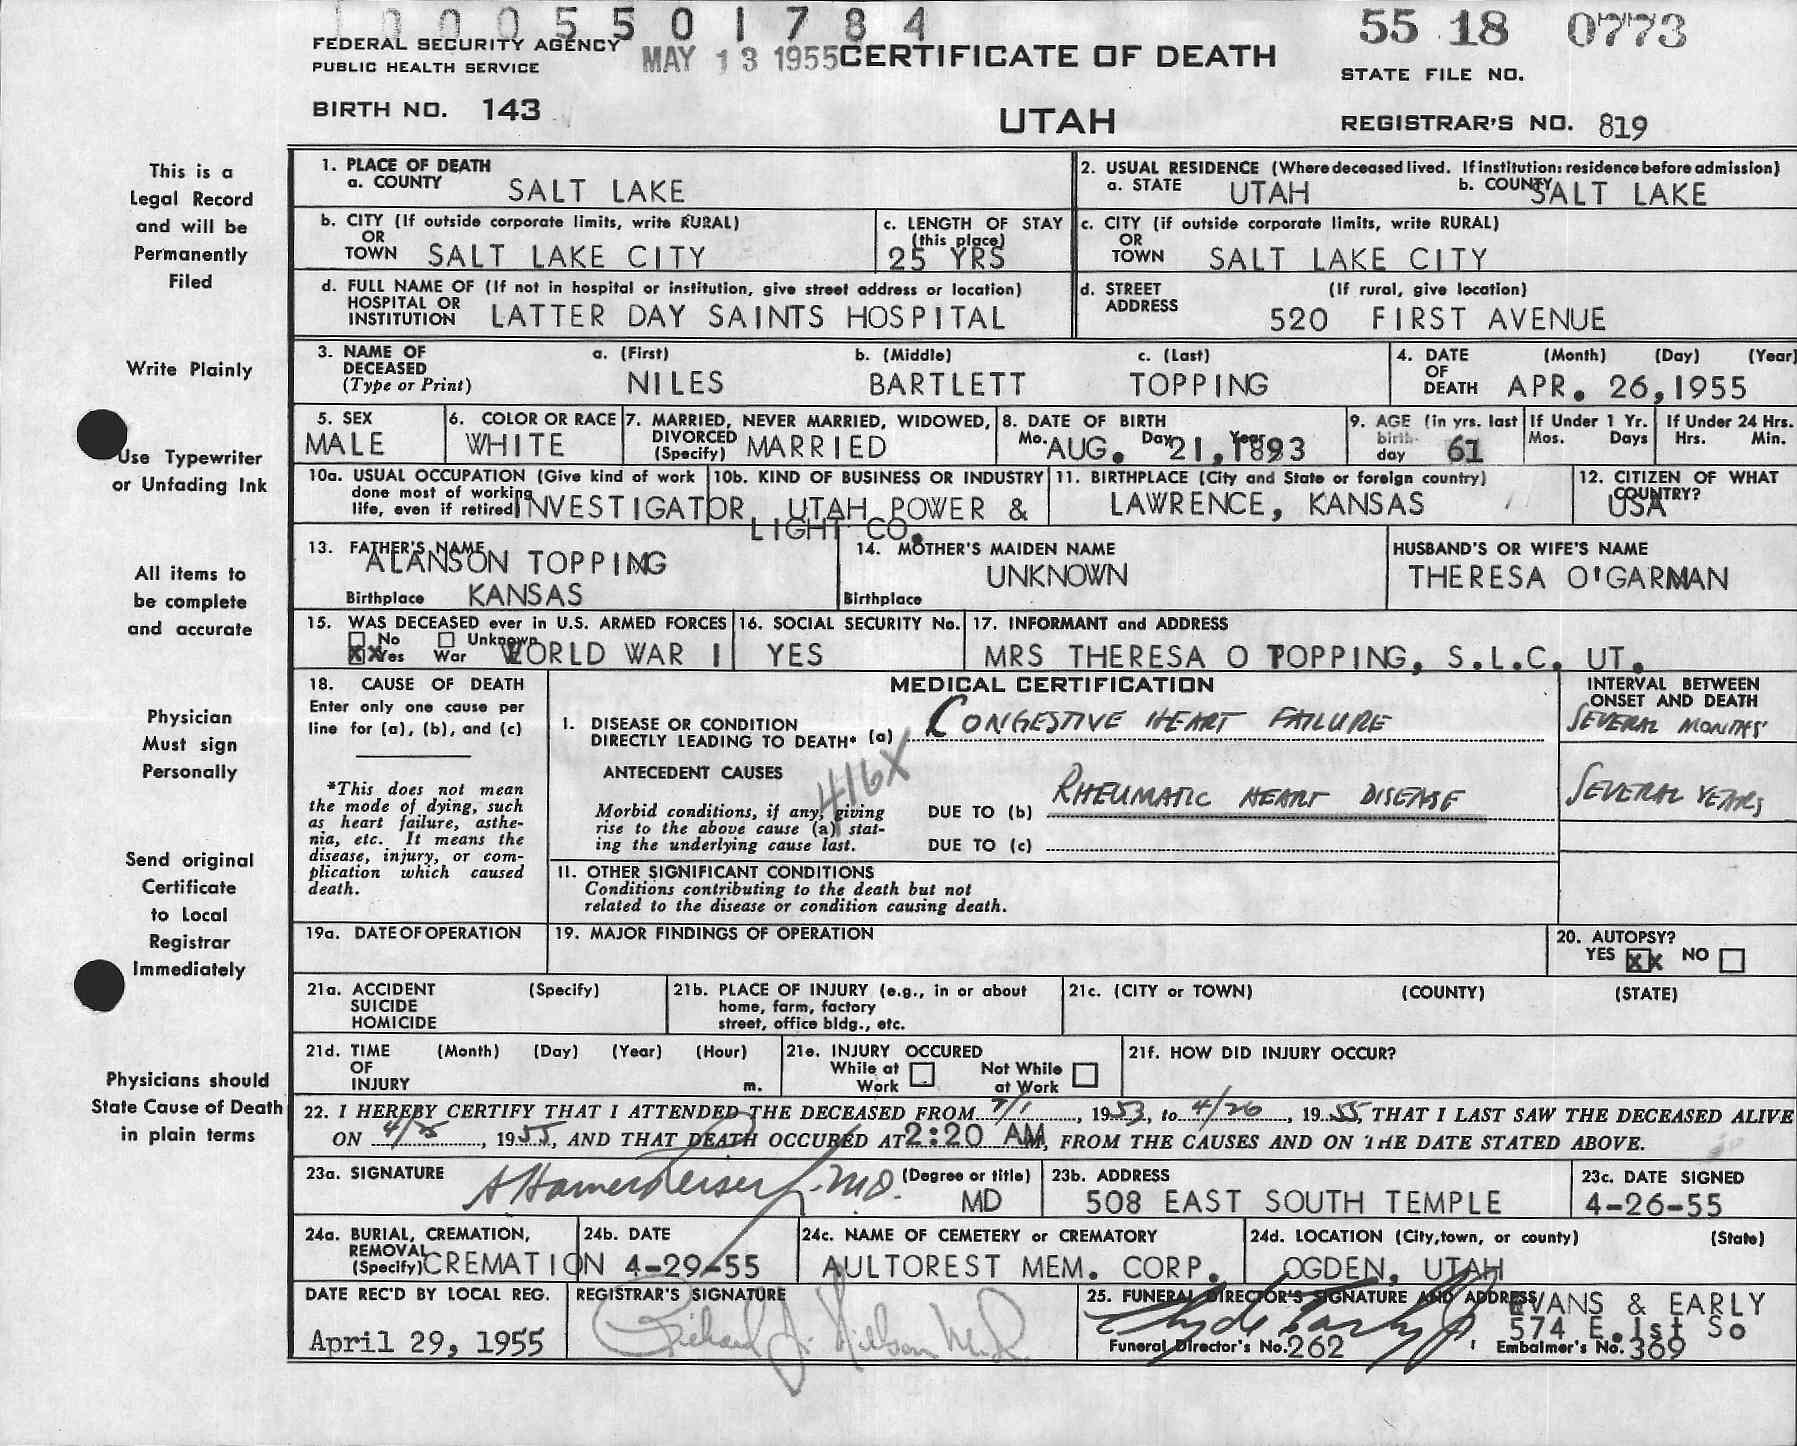 1 0 0 0 5 5 0 1 7 8 4
55 18 0773
FEDERAL SECURITY AGENCY
PUBLIC HEALTH SERVICE
MAY 13 1955
CERTIFICATE OF DEATH
STATE FILE NO.
BIRTH NO. 143
UTAH
REGISTRAR'S NO. 819
This is a
Legal Record
and will be
Permanently
Filed
Write Plainly
Use Typewriter
or Unfading Ink
All items to
be complete
and accurate
Physician
Must sign
Personally
Send original
Certificate
to Local
Registrar
Immediately
Physicians should
State Cause of Death
in plain terms
1. PLACE OF DEATH
a. COUNTY SALT LAKE
2. USUAL RESIDENCE (Where deceased lived. If institution: residence before admission)
a. STATE UTAH b. COUNTY SALT LAKE
b. CITY (If outside corporate limits, write RURAL)
OR
TOWN SALT LAKE CITY
c. LENGTH OF STAY
(this place)
25 YRS
c. CITY (if outside corporate limits, write RURAL)
OR
TOWN SALT LAKE CITY
d. FULL NAME OF (If not in hospital or institution, give street address or location)
HOSPITAL OR
INSTITUTION LATTER DAY SAINTS HOSPITAL
d. STREET (If rural, give location)
ADDRESS
520 FIRST AVENUE
3. NAME OF
DECEASED
(Type or Print)
a. (First) b. (Middle) c. (Last)
NILES BARTLETT TOPPING
4. DATE (Month) (Day) (Year)
OF
DEATH APR. 26, 1955
5. SEX
MALE
6. COLOR OR RACE
WHITE
7. MARRIED, NEVER MARRIED, WIDOWED,
DIVORCED
(Specify) MARRIED
8. DATE OF BIRTH
Mo. Day Year
AUG. 21, 1893
9. AGE (in yrs. last
birth-
day 61
If Under 1 Yr.
Mos. Days
If Under 24 Hrs.
Hrs. Min.
10a. USUAL OCCUPATION (Give kind of work
done most of working
life, even if retired) INVESTIGATOR
10b. KIND OF BUSINESS OR INDUSTRY
UTAH POWER &
LIGHT CO.
11. BIRTHPLACE (City and State or foreign country)
LAWRENCE, KANSAS
12. CITIZEN OF WHAT
COUNTRY?
USA
13. FATHER'S NAME
ALANSON TOPPING
Birthplace KANSAS
14. MOTHER'S MAIDEN NAME
UNKNOWN
Birthplace
HUSBAND'S OR WIFE'S NAME
THERESA O'GARMAN
15. WAS DECEASED ever in U.S. ARMED FORCES
No Unknown
XX Yes War WORLD WAR I
16. SOCIAL SECURITY No.
YES
17. INFORMANT and ADDRESS
MRS THERESA O TOPPING, S.L.C. UT.
18. CAUSE OF DEATH
Enter only one cause per
line for (a), (b), and (c)
*This does not mean
the mode of dying, such
as heart failure, asthe-
nia, etc. It means the
disease, injury, or com-
plication which caused
death.
MEDICAL CERTIFICATION
INTERVAL BETWEEN
ONSET AND DEATH
I. DISEASE OR CONDITION
DIRECTLY LEADING TO DEATH* (a) CONGESTIVE HEART FAILURE
SEVERAL MONTHS
ANTECEDENT CAUSES
416X
Morbid conditions, if any, giving
rise to the above cause (a) stat-
ing the underlying cause last.
DUE TO (b) RHEUMATIC HEART DISEASE
SEVERAL YEARS
DUE TO (c)
II. OTHER SIGNIFICANT CONDITIONS
Conditions contributing to the death but not
related to the disease or condition causing death.
19a. DATE OF OPERATION
19. MAJOR FINDINGS OF OPERATION
20. AUTOPSY?
YES XX NO
21a. ACCIDENT (Specify)
SUICIDE
HOMICIDE
21b. PLACE OF INJURY (e.g., in or about
home, farm, factory
street, office bldg., etc.
21c. (CITY or TOWN) (COUNTY) (STATE)
21d. TIME (Month) (Day) (Year) (Hour)
OF
INJURY m.
21e. INJURY OCCURED
While at Not While
Work at Work
21f. HOW DID INJURY OCCUR?
22. I HEREBY CERTIFY THAT I ATTENDED THE DECEASED FROM 7/1, 1953, to 4/26, 1955, THAT I LAST SAW THE DECEASED ALIVE
ON 4/25, 1955, AND THAT DEATH OCCURED AT 2:20 AM, FROM THE CAUSES AND ON THE DATE STATED ABOVE.
23a. SIGNATURE MD. (Degree or title)
MD
23b. ADDRESS
508 EAST SOUTH TEMPLE
23c. DATE SIGNED
4-26-55
24a. BURIAL, CREMATION,
REMOVAL
(Specify) CREMATION
24b. DATE
4-29-55
24c. NAME OF CEMETERY or CREMATORY
AULTOREST MEM. CORP.
24d. LOCATION (City, town, or county) (State)
OGDEN, UTAH
DATE REC'D BY LOCAL REG.
April 29, 1955
REGISTRAR'S SIGNATURE
Richard J. Nielson M.D.
25. FUNERAL DIRECTOR'S SIGNATURE AND ADDRESS
EVANS & EARLY
574 E. 1st So
Funeral Director's No. 262
Embalmer's No. 369